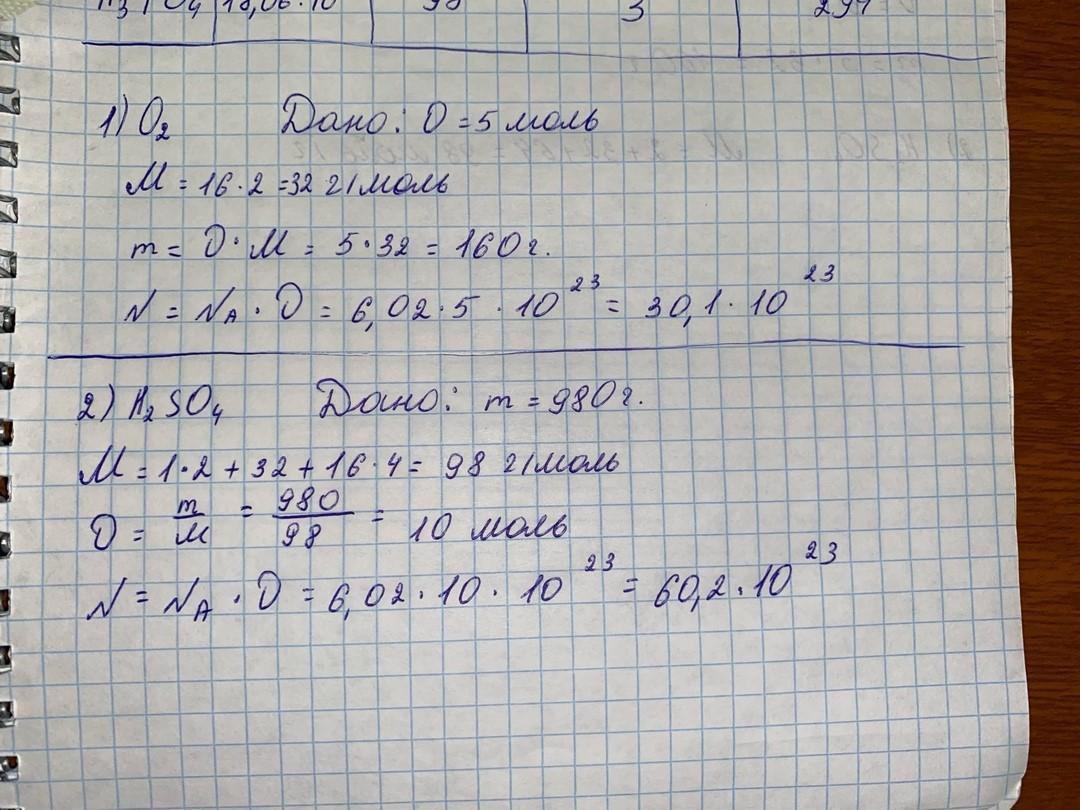 H₃PO₄ 18,06·10 98 3 294
1) O₂ Дано: υ = 5 моль
M = 16·2 = 32 г/моль
m = υ·M = 5·32 = 160 г.
N = Nᴀ·υ = 6,02·5·10²³ = 30,1·10²³
2) H₂SO₄ Дано: m = 980 г.
M = 1·2 + 32 + 16·4 = 98 г/моль
υ = m/M = 980/98 = 10 моль
N = Nᴀ·υ = 6,02·10·10²³ = 60,2·10²³